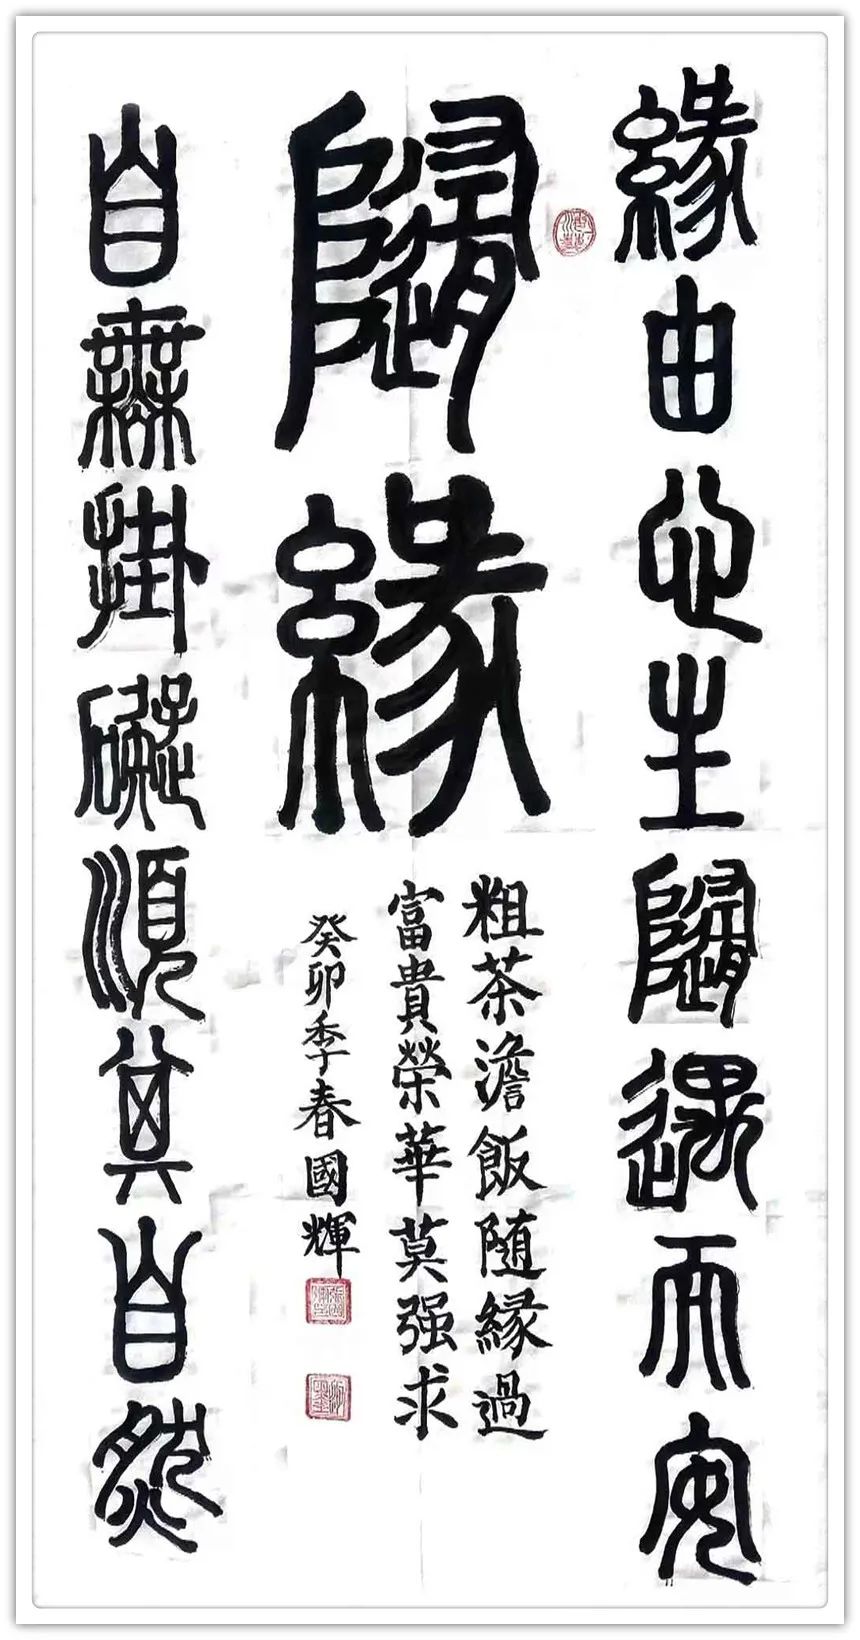 緣由心生隨遇而安
隨緣
粗茶澹飯随緣過
富貴榮華莫强求
癸卯季春國輝
自無掛礙順其自然